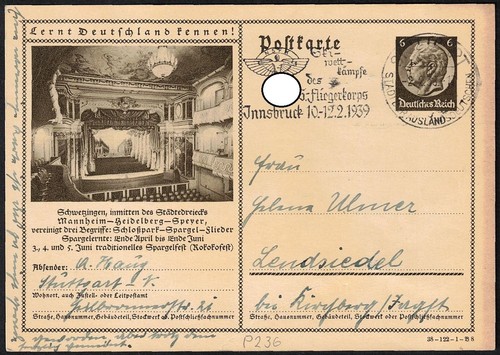 Lernt Deutschland kennen!
Postkarte
Ski-
wett-
kämpfe
des
Fliegerkorps
Innsbruck 10-12.2.1939
6 6
Deutsches Reich
AUSLAND
Schwetzingen, inmitten des Städtedreiecks
Mannheim-Heidelberg-Speyer,
vereinigt drei Begriffe: Schloßpark-Spargel-Flieder
Spargelernte: Ende April bis Ende Juni
3., 4. und 5. Juni traditionelles Spargelfest (Rokokofest)
Absender: A. Haug
Stuttgart
Wohnort, auch Zustell- oder Leitpostamt
Straße, Hausnummer, Gebäudeteil, Stockwerk od. Postschließfachnummer
Frau
Helena Ulmer
Lendsiedel
bei Kirchberg/Jagst
Straße, Hausnummer, Gebäudeteil, Stockwerk oder Postschließfachnummer
38-122-1-B8
P236